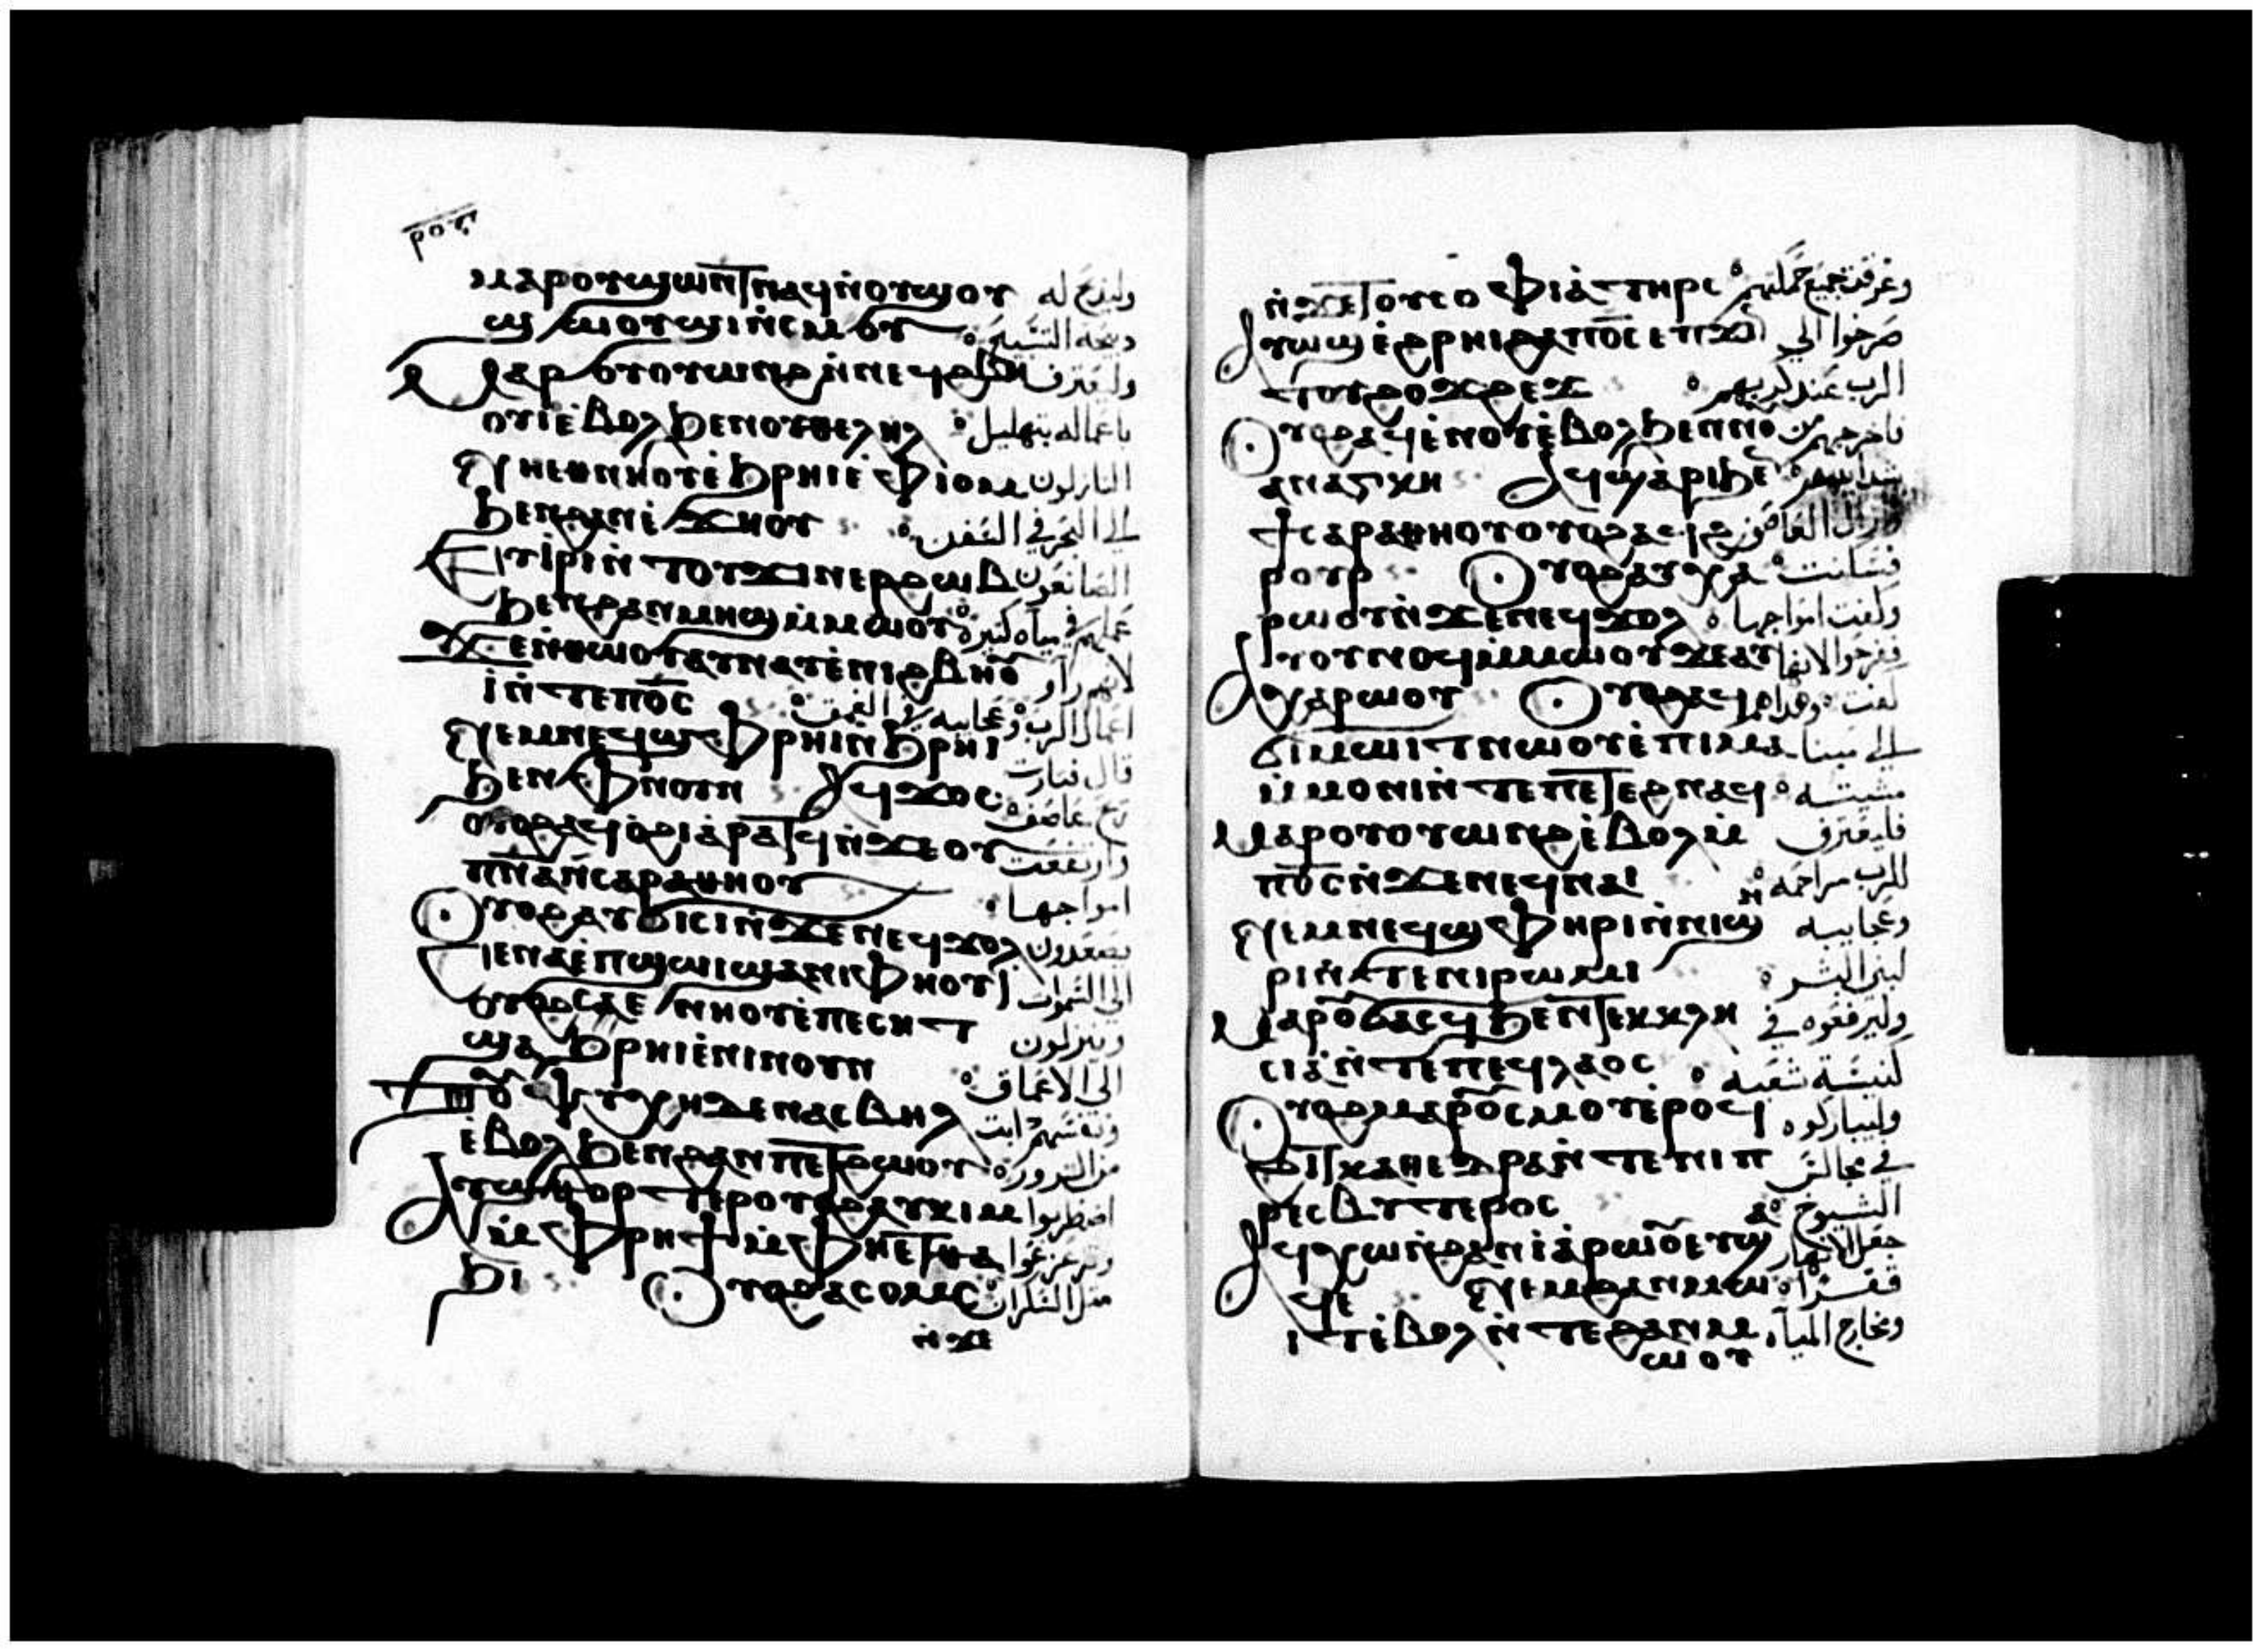 ⲣⲟⲋ
ⲙⲁⲣⲟⲩϣⲱⲛ̅ϯⲛⲁϥⲛ̀ⲟⲩϣⲟⲩ وليذبح له
ϣⲱⲟⲩϣⲓⲛ̀ⲥⲙⲟⲩ ذبيحة التسبيح
ⲙⲁⲣⲟⲩⲟⲩⲱⲛϩⲛ̀ⲛⲉϥϩⲃⲏ وليعترف
ⲟⲩⲓⲉ̀ⲃⲟⲗϧⲉⲛⲟⲩⲑⲉⲗⲏⲗ باعماله بتهليل
ⲛⲏⲉⲑⲛⲏⲟⲩⲉ̀ϧⲣⲏⲓⲉ̀ⲫⲓⲟⲙ النازلون
ϧⲉⲛϩⲁⲛⲉ̀ϫⲏⲟⲩ الي البحر في السفن
ⲉⲩⲓ̀ⲣⲓⲛ̀ⲧⲟⲩϫⲓⲛⲉⲣϩⲱⲃ الصانعون
ϧⲉⲛϩⲁⲛⲙⲏϣⲙ̀ⲙⲱⲟⲩ عملهم في مياه كثيرة
ϫⲉⲛ̀ⲑⲱⲟⲩⲁⲩⲛⲁⲩⲉ̀ⲛⲓϩⲃⲏⲟⲩ لانهم راو
ⲓⲛ̀ⲧⲉⲡⲟ̅ⲥ̅ اعمال الرب وعجايبه في العمق
ⲛⲉⲙⲛⲉϥϣⲫⲏⲣⲓⲛ̀ϧⲣⲏⲓ
ϧⲉⲛⲫⲛⲟⲩⲛ ⲁϥϫⲟⲥ قال فثارت
ⲟⲩⲟϩⲁϥⲟ̀ϩⲓⲁ̀ⲣⲁⲧϥⲛ̀ϫⲉⲟⲩ ريح عاصف
ⲡ̅ⲛ̅ⲁ̅ⲛ̀ⲥⲁⲣⲁⲑⲏⲟⲩ وارتفعت
ⲟⲩⲟϩⲁⲩϭⲓⲥⲓⲛ̀ϫⲉⲛⲉϥϫⲟⲗ امواجها
ⲥⲉⲛⲁⲉ̀ⲡϣⲱⲓϣⲁⲛⲓⲫⲏⲟⲩⲓ يصعدون الي السموات
ⲟⲩⲟϩⲥⲉⲛⲏⲟⲩⲉ̀ⲡⲉⲥⲏⲧ وينزلون
ϣⲁϧⲣⲏⲓⲉ̀ⲛⲓⲛⲟⲩⲛ الي الاعماق
ⲧⲟⲩⲯⲩⲭⲏⲇⲉⲛⲁⲥⲃⲏⲗ ونفسهم ذابت
ⲉ̀ⲃⲟⲗϧⲉⲛϩⲁⲛⲡⲉⲧϩⲱⲟⲩ من الشرور
ⲁⲩϣⲑⲟⲣⲧⲉⲣⲟⲩⲟϩⲁⲩⲕⲓⲙ اضطربوا
ⲙ̀ⲫⲣⲏϯⲙ̀ⲫⲏⲉⲧⲑⲁ وتزعزعوا
ϧⲓ ⲟⲩⲟϩⲁⲥⲟⲙⲥ مثل السكران
ⲛ̀ϫⲉ
ⲛ̀ϫⲉⲧⲟⲩⲥⲟⲫⲓⲁ̀ⲧⲏⲣⲥ وغرقت جميع حكمتهم
ⲁⲩⲱϣⲉ̀ϩⲣⲏⲓϩⲁⲡⲟ̅ⲥ̅ⲉⲡϫⲓⲛ صرخوا الي
ⲧⲟⲩϩⲟϫϩⲉϫ الرب عند كربهم
ⲟⲩⲟϩⲁϥⲉⲛⲟⲩⲉ̀ⲃⲟⲗϧⲉⲛⲛⲟⲩ فاخرجهم من
ⲁⲛⲁⲅⲕⲏ ⲁϥϣⲁⲣⲓϧⲉ شدايدهم
ϯⲥⲁⲣⲁⲑⲏⲟⲩⲟⲩⲟϩⲁⲥϩ
ⲣⲟⲩⲣ ⲟⲩⲟϩⲁⲩⲭⲁ فسكنت
ⲣⲱⲟⲩⲛ̀ϫⲉⲛⲉϥϫⲟⲗ وكفت امواجها
ⲁⲩⲟⲩⲛⲟϥⲙ̀ⲙⲱⲟⲩϫⲉⲁⲩ ففرحوا لانها
ⲭⲁⲣⲱⲟⲩ ⲟⲩⲟϩⲁϥ كفت وهداهم
ϭⲓⲙⲱⲓⲧⲛⲱⲟⲩⲉ̀ⲡⲓⲙⲁ الي مينا
ⲙ̀ⲙⲟⲛⲓⲛ̀ⲧⲉⲡⲉⲧⲉϩⲛⲁϥ مشيته
ⲙⲁⲣⲟⲩⲟⲩⲱⲛϩⲉ̀ⲃⲟⲗⲙ̀ فليعترف
ⲡⲟ̅ⲥ̅ⲛ̀ϫⲉⲛⲉϥⲛⲁⲓ للرب مراحمه
ⲛⲉⲙⲛⲉϥϣⲫⲏⲣⲓⲛ̀ⲛⲓϣⲏ وعجايبه
ⲣⲓⲛ̀ⲧⲉⲛⲓⲣⲱⲙⲓ لبني البشر
ⲙⲁⲣⲟⲩϭⲁⲥϥϧⲉⲛϯⲉⲕⲕⲗⲏ وليرفعوه في
ⲥⲓⲁ̀ⲛ̀ⲧⲉⲡⲉϥⲗⲁⲟⲥ كنيسة شعبه
ⲟⲩⲟϩⲙⲁⲣⲟⲩⲥⲙⲟⲩⲉ̀ⲣⲟϥ وليباركوه
ϩⲓⲧⲕⲁⲑⲉⲇⲣⲁⲛ̀ⲧⲉⲛⲓⲡ في مجالس
ⲣⲉⲥⲃⲩⲧⲉⲣⲟⲥ الشيوخ
ⲁϥⲭⲱⲛ̀ϩⲁⲛⲓⲁ̀ⲣⲱⲟⲩⲉⲩϣ جعل الانهار
ϥⲉ ⲛⲉⲙϩⲁⲛⲙⲱ قفرا
ⲓⲧⲉ̀ⲃⲟⲗⲛ̀ⲧⲉϩⲁⲛⲙ ومخارج المياه
ⲱⲟⲩ